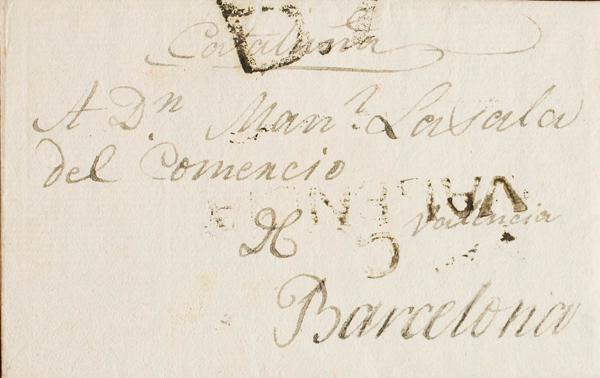 Cataluña
A Dn Manl. Lasala
del Comercio
VALENCIA
Valencia
De
Barcelona